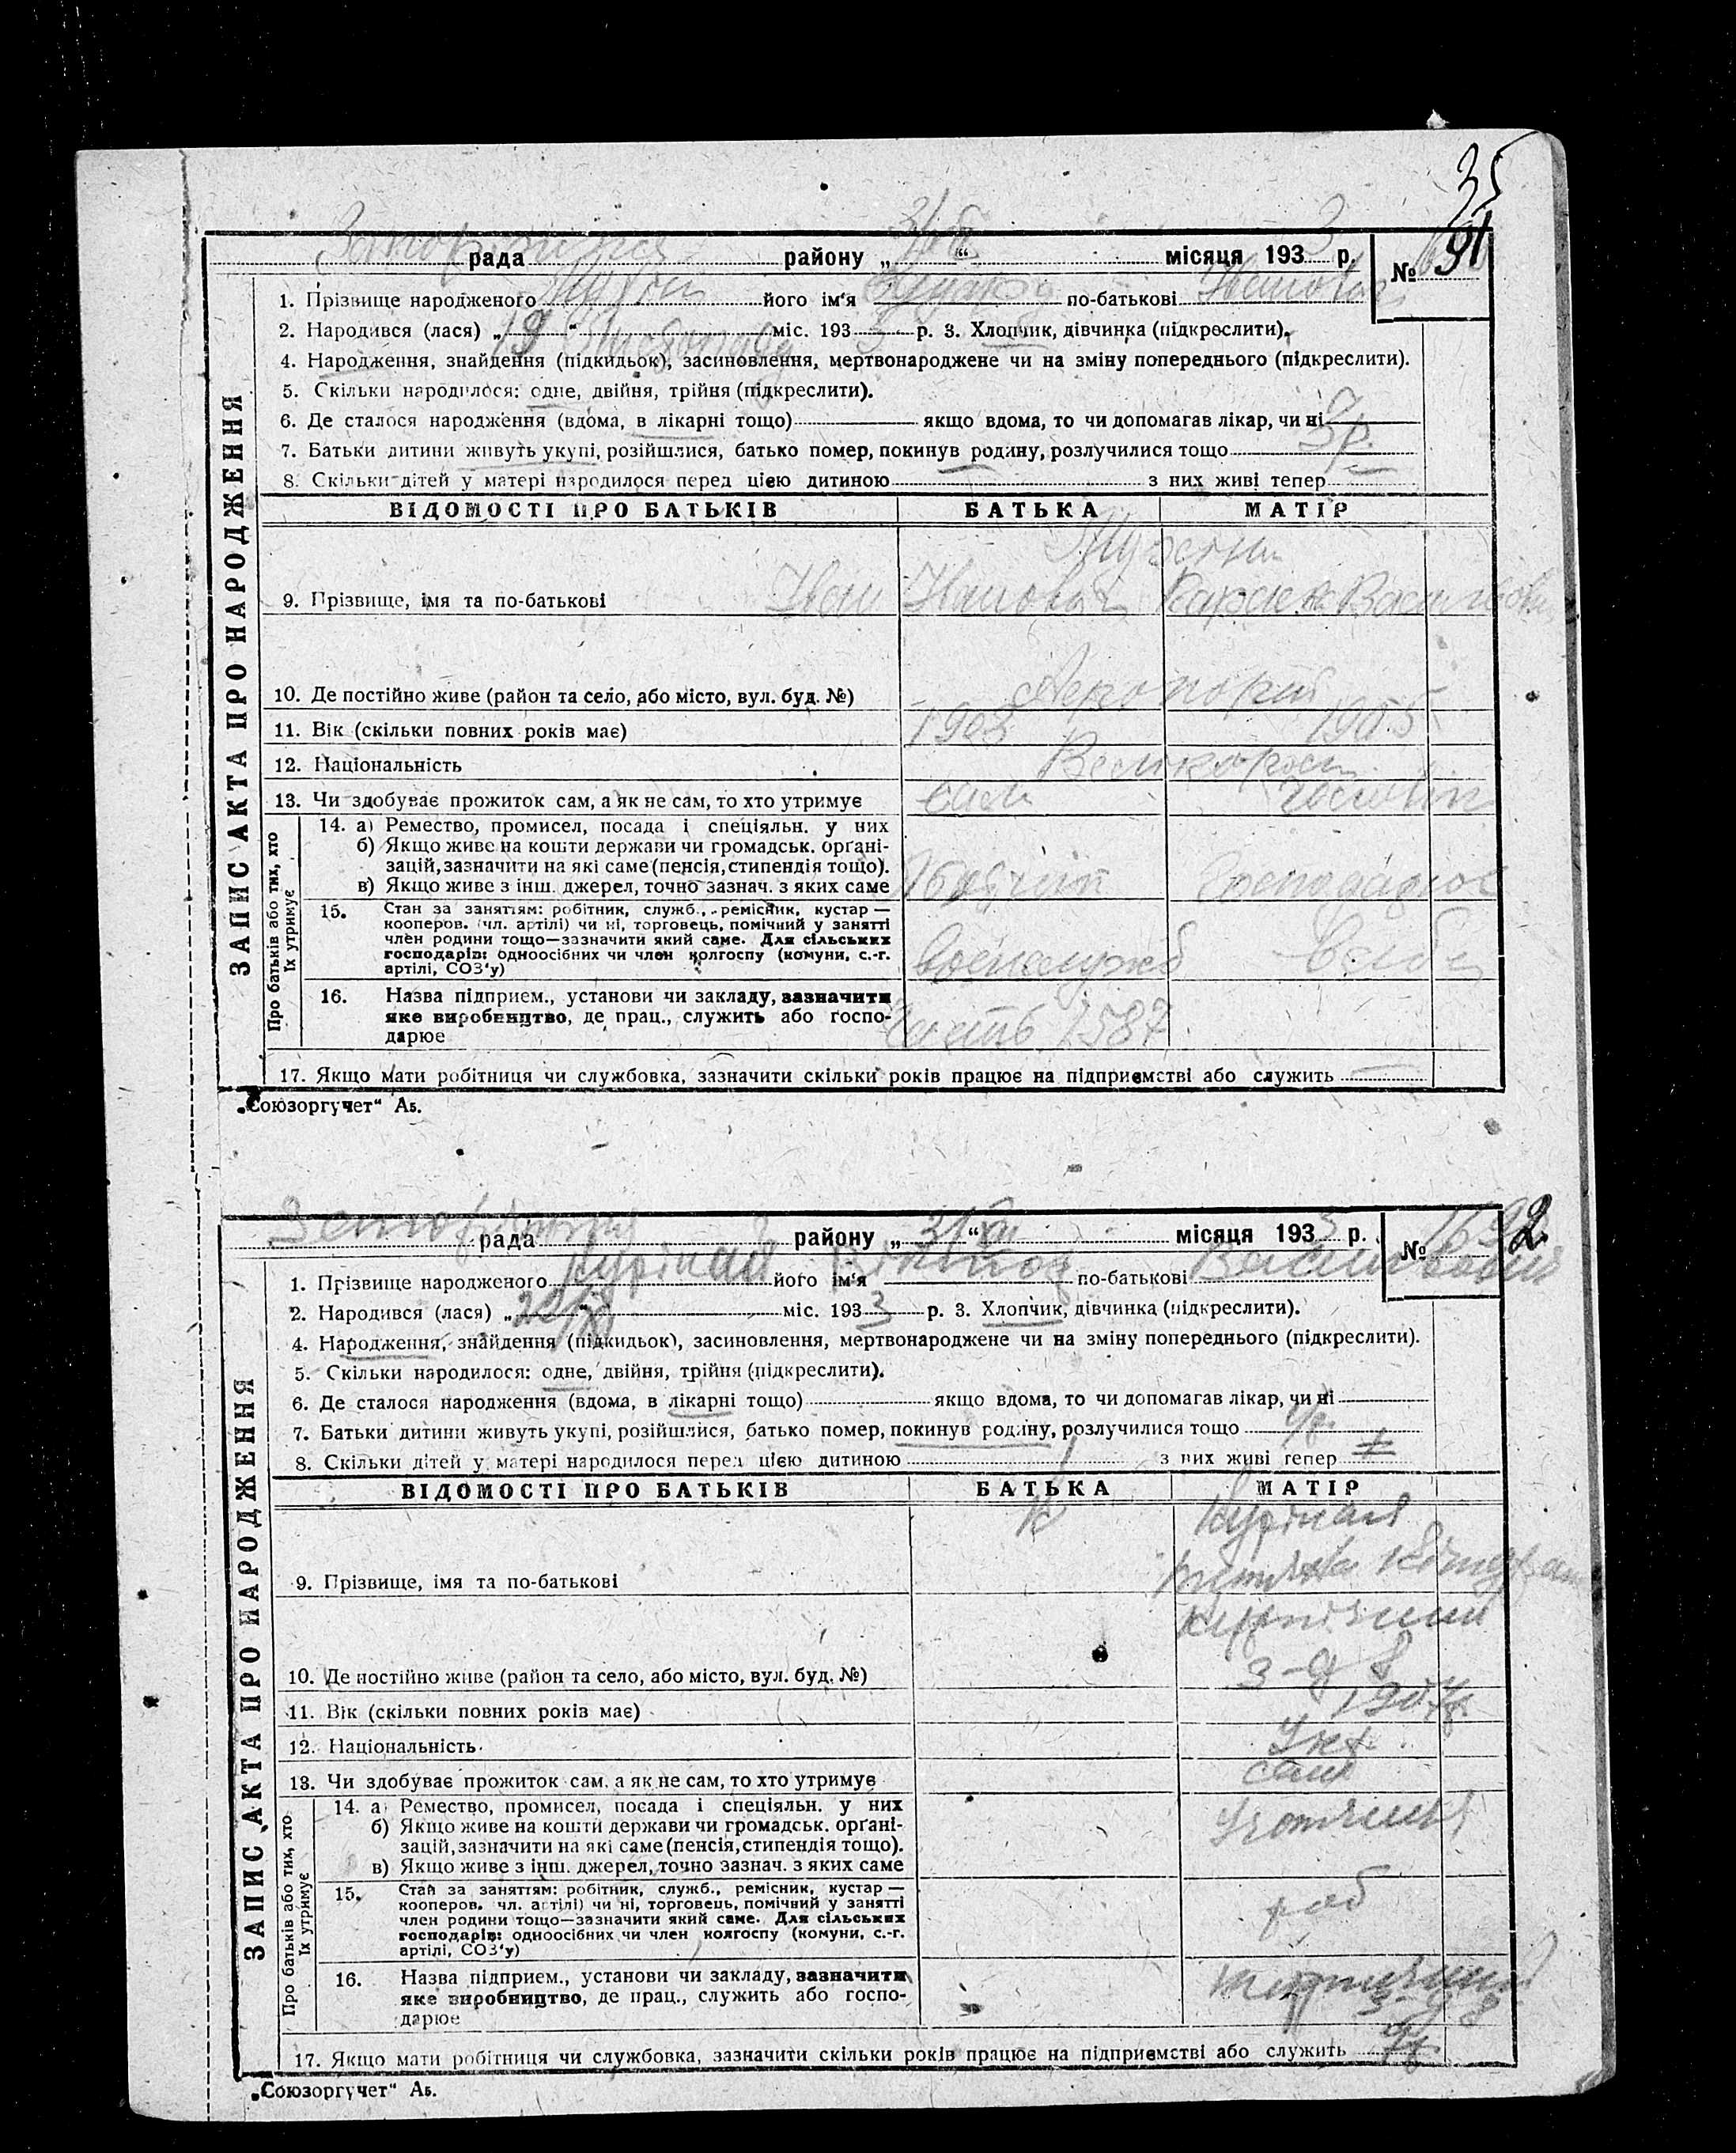 35
91
рада району „ “ місяця 1933 р. №
1. Прізвище народженого його ім'я по-батькові
2. Народився (лася) „19“ Листопада міс. 1933 р. 3. Хлопчик, дівчинка (підкреслити).
4. Народження, знайдення (підкидьок), засиновлення, мертвонароджене чи на зміну попереднього (підкреслити).
5. Скільки народилося: одне, двійня, трійня (підкреслити).
6. Де сталося народження (вдома, в лікарні тощо) якщо вдома, то чи допомагав лікар, чи ні
7. Батьки дитини живуть укупі, розійшлися, батько помер, покинув родину, розлучилися тощо 3р.
8. Скільки дітей у матері народилося перед цією дитиною з них живі тепер
ЗАПИС АКТА ПРО НАРОДЖЕННЯ
ВІДОМОСТІ ПРО БАТЬКІВ БАТЬКА МАТІР
9. Прізвище, імя та по-батькові Іван Іванович
10. Де постійно живе (район та село, або місто, вул. буд. №) Аеропорт
11. Вік (скільки повних років має) 1903 1905
12. Національність Великорос
13. Чи здобуває прожиток сам, а як не сам, то хто утримує сам чоловік
Про батьків або тих, хто їх утримує
14. а) Ремество, промисел, посада і спеціяльн. у них
б) Якщо живе на кошти держави чи громадськ. орґані-
зацій, зазначити на які саме (пенсія, стипендія тощо).
в) Якщо живе з інш. джерел, точно зазнач. з яких саме
15. Стан за заняттям: робітник, служб., ремісник, кустар —
кооперов. (чл. артілі) чи ні, торговець, помічний у занятті
член родини тощо—зазначити який саме. Для сільських
господарів: одноосібних чи член колгоспу (комуни, с.-г.
артілі, СОЗ'у)
16. Назва підприєм., установи чи закладу, зазначити
яке виробництво, де прац., служить або госпо-
дарює
17. Якщо мати робітниця чи службовка, зазначити скільки років працює на підприємстві або служить
„Союзоргучет“ А5.
рада району „31 XII“ місяця 1933 р. № 2.
1. Прізвище народженого його ім'я Віктор по-батькові
2. Народився (лася) „ “ міс. 1933 р. 3. Хлопчик, дівчинка (підкреслити).
4. Народження, знайдення (підкидьок), засиновлення, мертвонароджене чи на зміну попереднього (підкреслити).
5. Скільки народилося: одне, двійня, трійня (підкреслити).
6. Де сталося народження (вдома, в лікарні тощо) якщо вдома, то чи допомагав лікар, чи ні
7. Батьки дитини живуть укупі, розійшлися, батько помер, покинув родину, розлучилися тощо
8. Скільки дітей у матері народилося перед цією дитиною з них живі тепер
ЗАПИС АКТА ПРО НАРОДЖЕННЯ
ВІДОМОСТІ ПРО БАТЬКІВ БАТЬКА МАТІР
9. Прізвище, імя та по-батькові
10. Де постійно живе (район та село, або місто, вул. буд. №)
11. Вік (скільки повних років має)
12. Національність Укр.
13. Чи здобуває прожиток сам, а як не сам, то хто утримує сама
Про батьків або тих, хто їх утримує
14. а) Ремество, промисел, посада і спеціяльн. у них
б) Якщо живе на кошти держави чи громадськ. орґані-
зацій, зазначити на які саме (пенсія, стипендія тощо).
в) Якщо живе з інш. джерел, точно зазнач. з яких саме
15. Стан за заняттям: робітник, служб., ремісник, кустар —
кооперов. чл. артілі) чи ні, торговець, помічний у занятті
член родини тощо—зазначити який саме. Для сільських
господарів: одноосібних чи член колгоспу (комуни, с.-г.
артілі, СОЗ'у)
роб
16. Назва підприєм., установи чи закладу, зазначити
яке виробництво, де прац., служить або госпо-
дарює
17. Якщо мати робітниця чи службовка, зазначити скільки років працює на підприємстві або служить
„Союзоргучет“ А5.